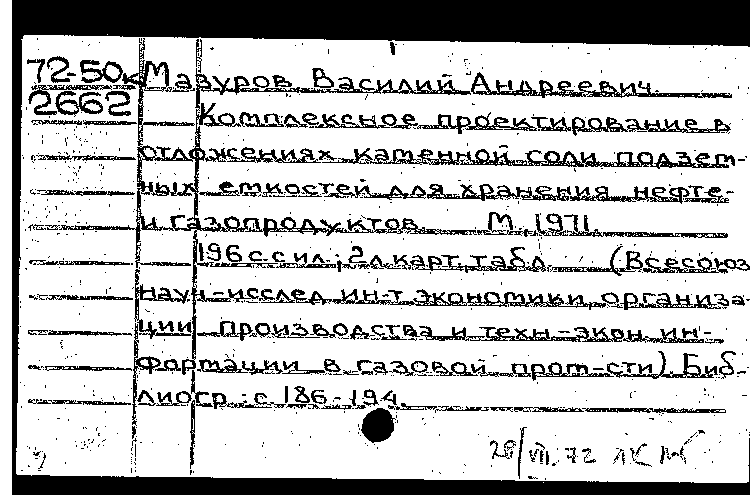 72-50к Мазуров Василий Андреевич.
2662 Комплексное проектирование в
отложениях каменной соли подзем-
ных емкостей для хранения нефте-
и газопродуктов М., 1971.
196 с. с ил.; 2 л. карт, табл. (Всесоюз
науч-исслед. ин-т экономики, организа-
ции производства и техн-экон. ин-
формации в газовой пром-сти). Биб-
лиогр.: с. 186-194.
28/VII.72